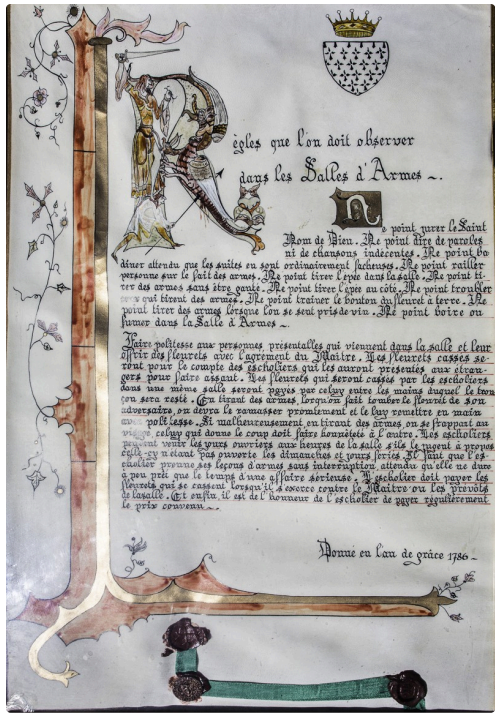 Règles que l'on doit observer
dans les Salles d'Armes ~.
Ne point jurer le Saint
Nom de Dieu. Ne point dire de paroles
ni de chansons indécentes. Ne point ba
diner attendu que les suites en sont ordinairement facheuses. Ne point railler
personne sur le fait des armes. Ne point tirer l'epée dans la salle. Ne point ti-
rer des armes sans être ganté. Ne point tirer l'epée au côté. Ne point troubler
ceux qui tirent des armes. Ne point trainer le bouton du fleuret à terre. Ne
point tirer des armes lorsque l'on se seut pris de vin. Ne point boire ou
fumer dans la Salle d'Armes ~.
Faire politesse aux personnes présentables qui viennent dans la salle et leur
offrir des fleurets avec l'agrément du Maitre. Les fleurets cassés se-
ront pour le compte des escholiers qui les auront présentés aux étran-
gers pour faire assaut. Les fleurets qui seront cassés par les escholiers
dans une même salle seront payés par celuy entre les mains duquel le tron
çon sera resté. En tirant des armes, lorqu'on fait tomber le fleuret de son
adversaire, on devra le ramasser promtement et le luy remettre en main
avec politesse. Si malheureusement, en tirant des armes, on se frappait au
visage, celuy qui donne le coup doit faire honnêteté à l'autre. Les escholiers
peuvent venir les jours ouvriers aux heures de la salle s'ils le jugent à propos
celle-cy n'étant pas ouverte les dimanches et jours fériés. Il faut que l'es-
cholier prenne ses leçons d'armes sans interruption attendu qu'elle ne dure
à peu près que le temps d'une affaire sérieuse. L'escholier doit payer les
fleurets qui se cassent lorsqu'il s'exerce contre le Maitre ou les prévots
de la salle. Et enfin, il est de l'honneur de l'escholier de payer régulièrement
le prix convenu ~.
Donné en l'an de grâce 1786 ~